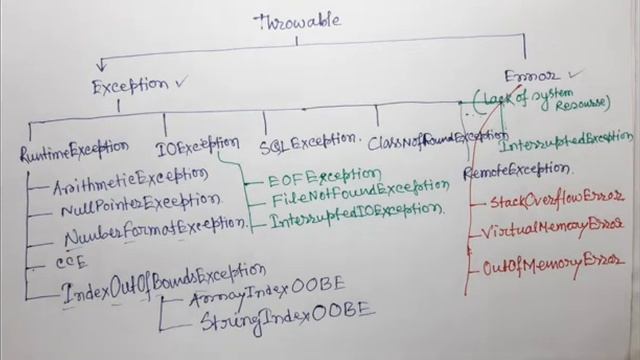 Throwable
Exception ✓
Error ✓
(Lack of system
Resourse)
RuntimeException
IOException
SQLException.
ClassNotFoundException
InterruptedException
RemoteException.
ArithmeticException
NullPointerException.
NumberFormatException.
CCE
IndexOutOfBoundsException
ArrayIndexOOBE
StringIndexOOBE
EOFException
FileNotFoundException
InterruptedIOException.
StackOverflowError
VirtualMemoryError
OutOfMemoryError